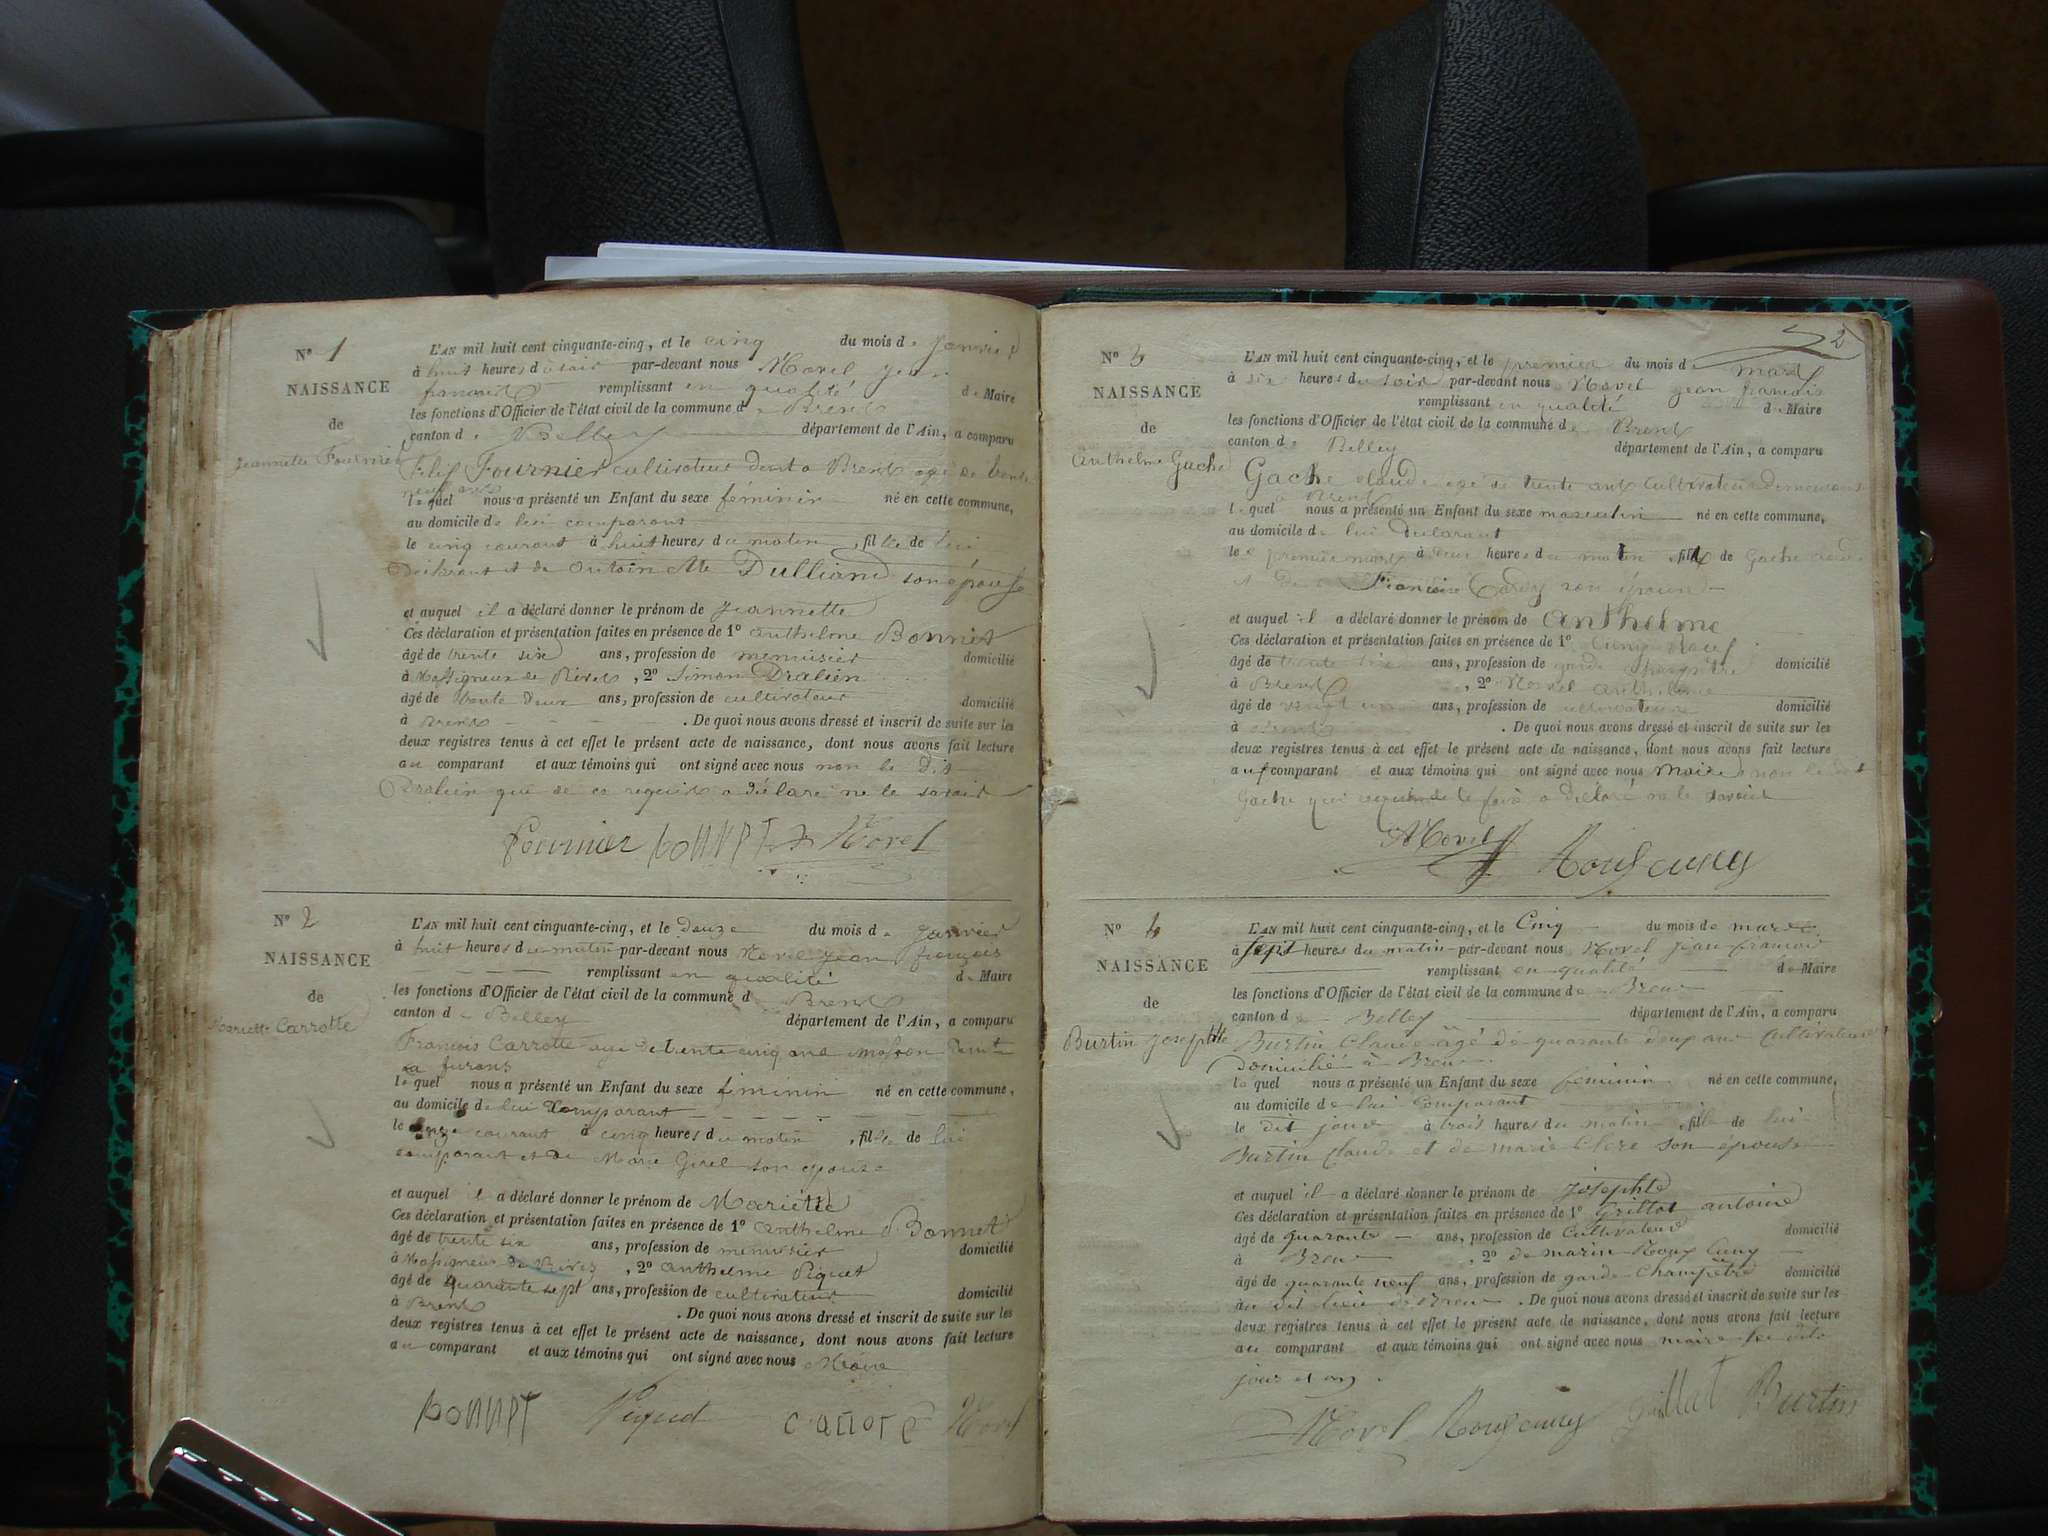 N° 1
NAISSANCE
de
Jeannette Fournier
L'AN mil huit cent cinquante-cinq, et le cinq du mois de Janvier
à huit heures du soir par-devant nous Morel Jean
françois remplissant en qualité de Maire
les fonctions d'Officier de l'état civil de la commune de Brens
canton de Belley département de l'Ain, a comparu
Fournier cultivateur Brens agé de trente
neuf ans
lequel nous a présenté un Enfant du sexe féminin né en cette commune,
au domicile de lui comparant
le cinq courant à huit heures du matin, fille de lui
déclarant et de Dulliand son épouse
et auquel il a déclaré donner le prénom de Jeannette
Ces déclaration et présentation faites en présence de 1° anthelme Bonnet
âgé de trente six ans, profession de menuisier domicilié
à Massigneux de Rives, 2° Simon Dralien
âgé de trente deux ans, profession de cultivateur domicilié
à Brens. De quoi nous avons dressé et inscrit de suite sur les
deux registres tenus à cet effet le présent acte de naissance, dont nous avons fait lecture
au comparant et aux témoins qui ont signé avec nous non le dit
Dralien qui de ce requis a déclaré ne le savoir
Fournier bonnet Morel
N° 2
NAISSANCE
de
Mariette Carrotte
L'AN mil huit cent cinquante-cinq, et le douze du mois de Janvier
à huit heures du matin par-devant nous Morel Jean françois
remplissant en qualité de Maire
les fonctions d'Officier de l'état civil de la commune de Brens
canton de Belley département de l'Ain, a comparu
François Carrotte age de trente cinq ans masson
a furans
lequel nous a présenté un Enfant du sexe féminin né en cette commune,
au domicile de lui comparant
le courant à cinq heures du matin, fille de lui
comparant et de Marie Girel son epouse
et auquel il a déclaré donner le prénom de Mariette
Ces déclaration et présentation faites en présence de 1° anthelme Bonnet
âgé de trente six ans, profession de menuisier domicilié
à Massigneux de Rives, 2° anthelme Piquet
âgé de quarante sept ans, profession de cultivateur domicilié
à Brens. De quoi nous avons dressé et inscrit de suite sur les
deux registres tenus à cet effet le présent acte de naissance, dont nous avons fait lecture
au comparant et aux témoins qui ont signé avec nous Maire
bonnet Piquet carrote Morel
2
N° 3
NAISSANCE
de
Anthelme Gache
L'AN mil huit cent cinquante-cinq, et le premier du mois de mars
à six heures du soir par-devant nous Morel jean francois
remplissant en qualité de Maire
les fonctions d'Officier de l'état civil de la commune de Brens
canton de Belley département de l'Ain, a comparu
Gache claude agé de trente ans Cultivateur demeurant
a Brens
lequel nous a présenté un Enfant du sexe masculin né en cette commune,
au domicile de lui déclarant
le premier mars à deux heures du matin, fils de Gache claude
et de Francoise son épouse
et auquel il a déclaré donner le prénom de anthelme
Ces déclaration et présentation faites en présence de 1° Cuny
âgé de ans, profession de garde champêtre domicilié
à Brens, 2° Morel anthelme
âgé de vingt ans, profession de cultivateur domicilié
à Brens. De quoi nous avons dressé et inscrit de suite sur les
deux registres tenus à cet effet le présent acte de naissance, dont nous avons fait lecture
au comparant et aux témoins qui ont signé avec nous maire non le dit
Gache qui requis de le faire a déclaré ne le savoir
Morel Roufcuny
N° 4
NAISSANCE
de
Burtin Josephte
L'AN mil huit cent cinquante-cinq, et le Cinq du mois de mars
à sept heures du matin par-devant nous Morel Jean francois
remplissant en qualité de Maire
les fonctions d'Officier de l'état civil de la commune de Bren
canton de Belley département de l'Ain, a comparu
Burtin Claude âgé de quarante deux ans Cultivateur
domicilié à Bren
lequel nous a présenté un Enfant du sexe feminin né en cette commune,
au domicile de lui Comparant
le dit jour à trois heures du matin, fille de lui
Burtin Claude et de marie Clere son épouse
et auquel il a déclaré donner le prénom de Josephte
Ces déclaration et présentation faites en présence de 1° Grillot antoine
âgé de quarante ans, profession de Cultivateur domicilié
à Bren, 2° de marin Rouf Cuny
âgé de quarante neuf ans, profession de garde Champêtre domicilié
au dit lieu de Bren. De quoi nous avons dressé et inscrit de suite sur les
deux registres tenus à cet effet le présent acte de naissance, dont nous avons fait lecture
au comparant et aux témoins qui ont signé avec nous maire
jour et an.
Morel Roufcuny grillat Burtin